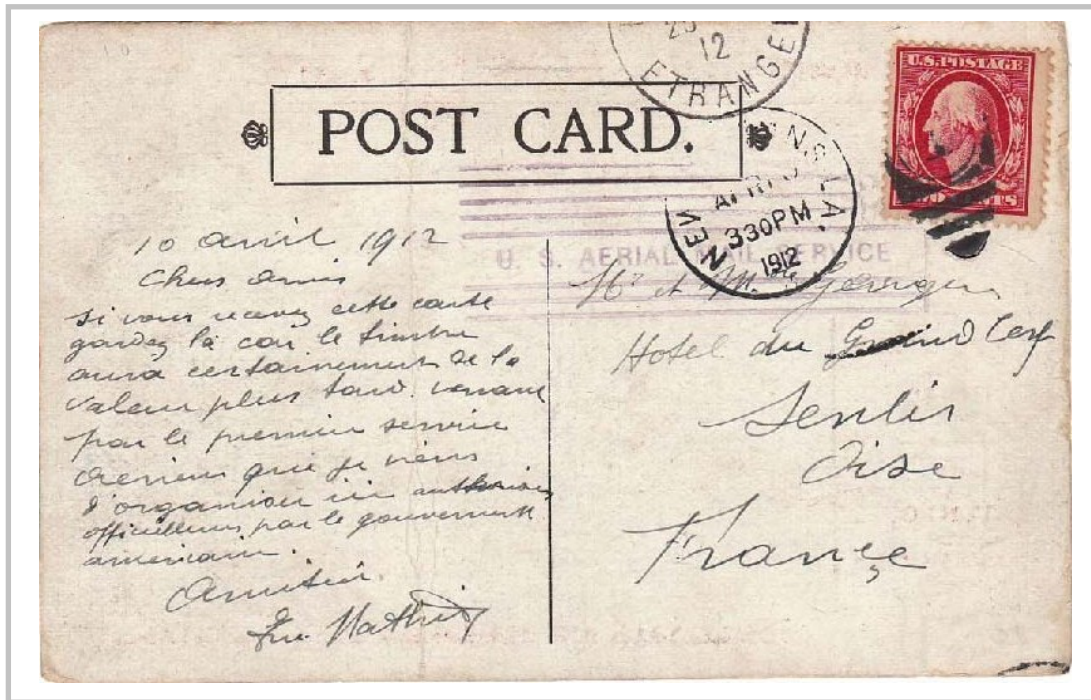 20
12
ETRANGE
U.S. POSTAGE
POST CARD.
NEW NS, LA.
APR
330 PM
1912
U. S. AERIAL MAIL SERVICE
10 avril 1912
Chers amis
si vous recevez cette carte
gardez la car le timbre
aura certainement de la
valeur plus tard venant
par le premier service
aerien que je viens
d'organiser ici
officiellement par le gouvernement
americain.
Amitiés
Mr et Mme
Hotel du Grand Cerf
Senlis
Oise
France